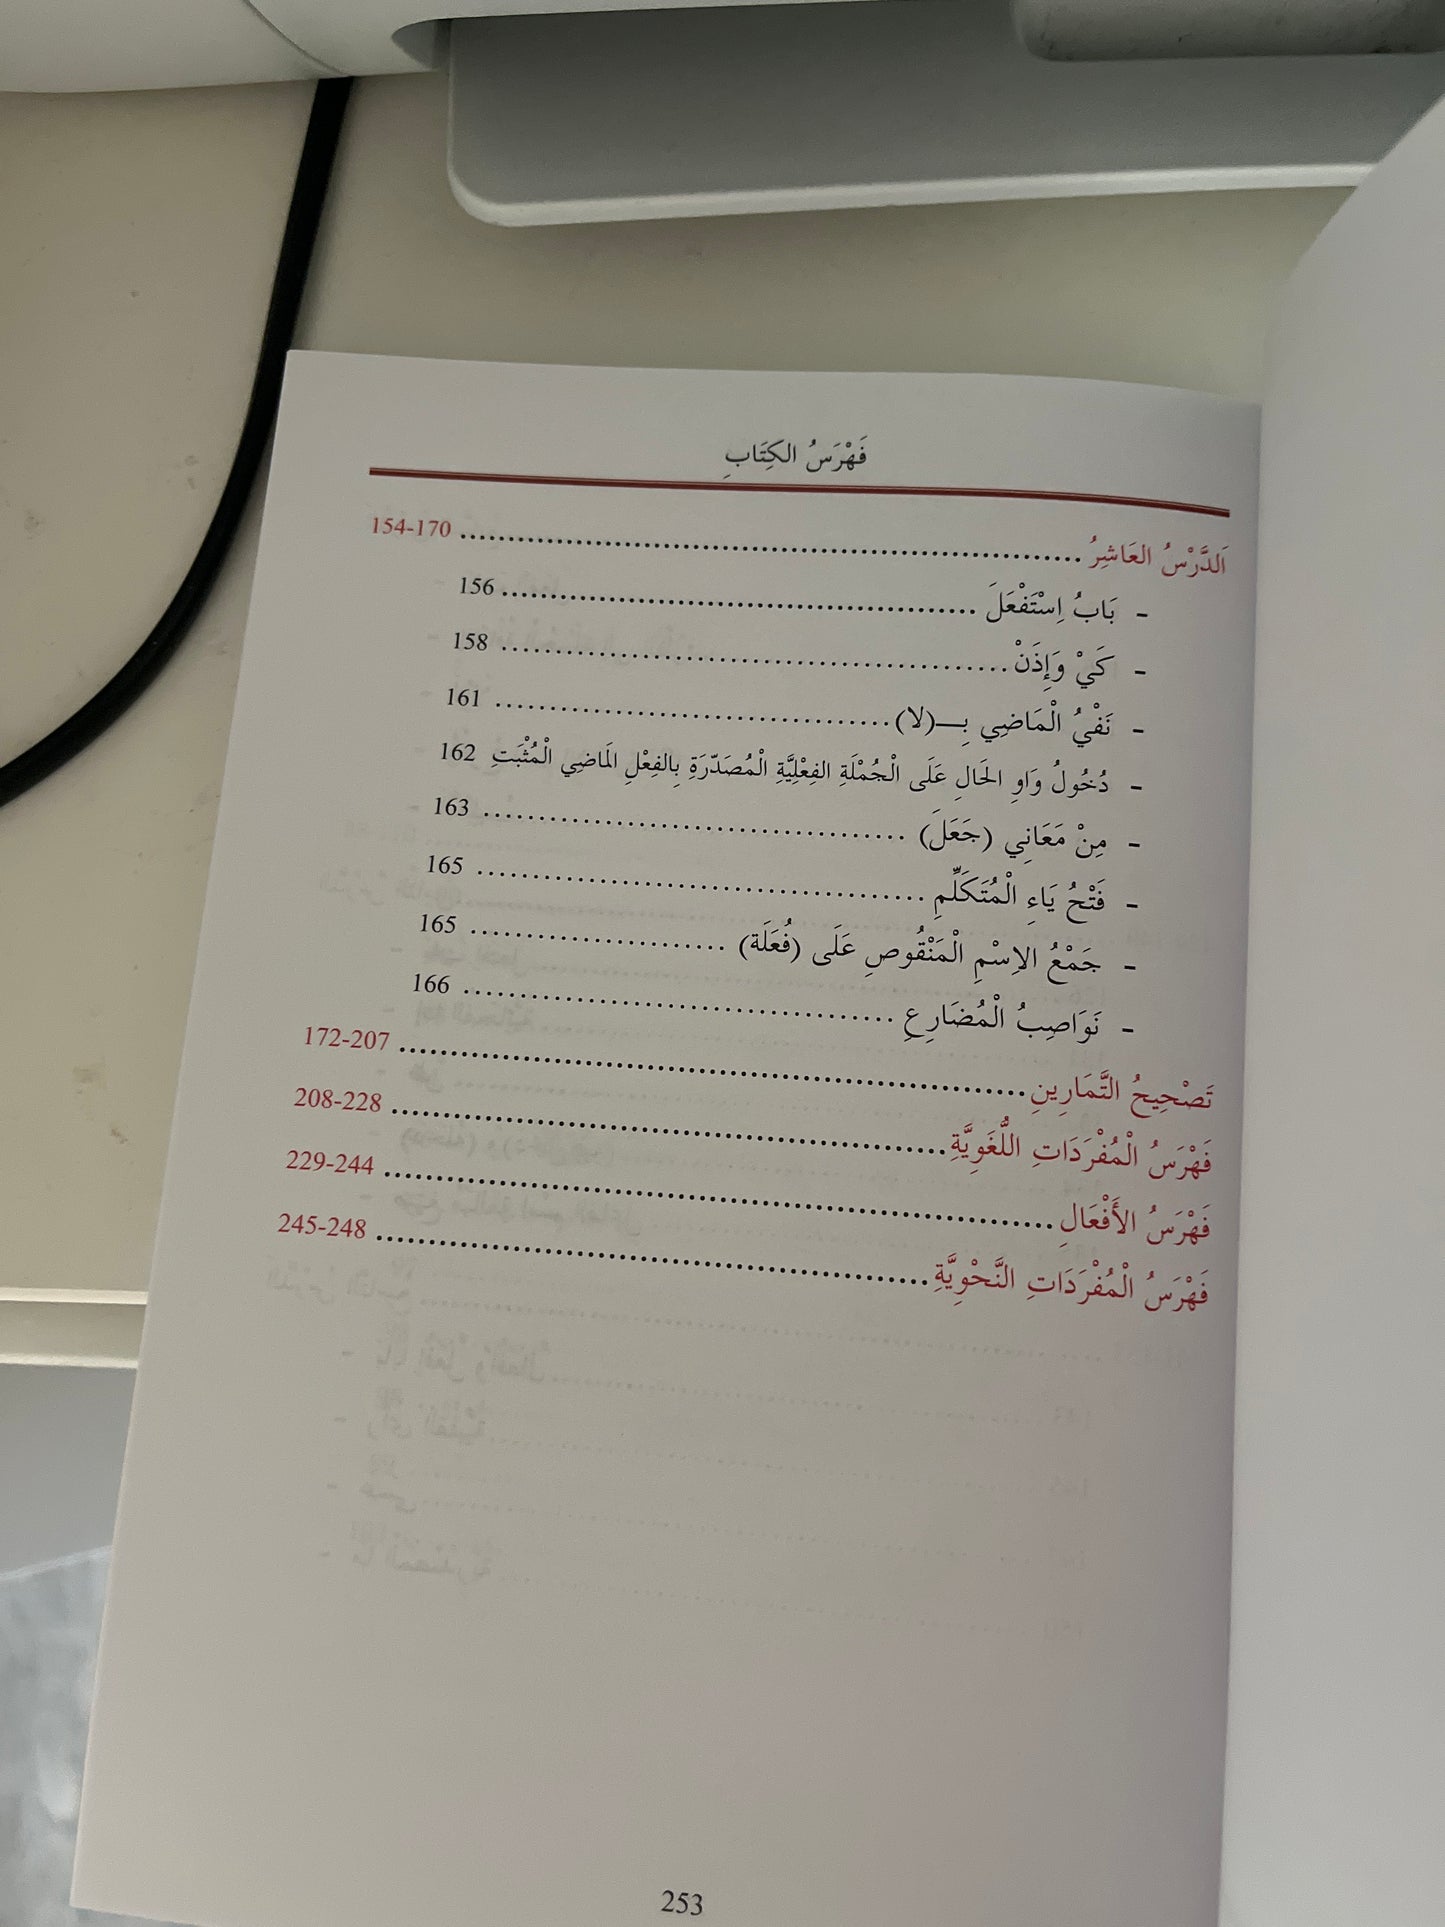 فَهْرَسُ الكِتَابِ
اَلدَّرْسُ العَاشِرُ ........ 154-170
- بَابُ اِسْتَفْعَلَ ........ 156
- كَيْ وَإِذَنْ ........ 158
- نَفْيُ الْمَاضِي بِـ(لا) ........ 161
- دُخُولُ وَاوِ الحَالِ عَلَى الْجُمْلَةِ الفِعْلِيَّةِ الْمُصَدّرَةِ بِالفِعْلِ الَماضِي الْمُثْبَتِ 162
- مِنْ مَعَانِي (جَعَلَ) ........ 163
- فَتْحُ يَاءِ الْمُتَكَلِّمِ ........ 165
- جَمْعُ الاِسْمِ الْمَنْقُوصِ عَلَى (فُعَلَة) ........ 165
- نَوَاصِبُ الْمُضَارِعِ ........ 166
تَصْحِيحُ التَّمَارِينِ ........ 172-207
فَهْرَسُ الْمُفْرَدَاتِ اللُّغَوِيَّةِ ........ 208-228
فَهْرَسُ الأَفْعَالِ ........ 229-244
فَهْرَسُ الْمُفْرَدَاتِ النَّحْوِيَّةِ ........ 245-248
253